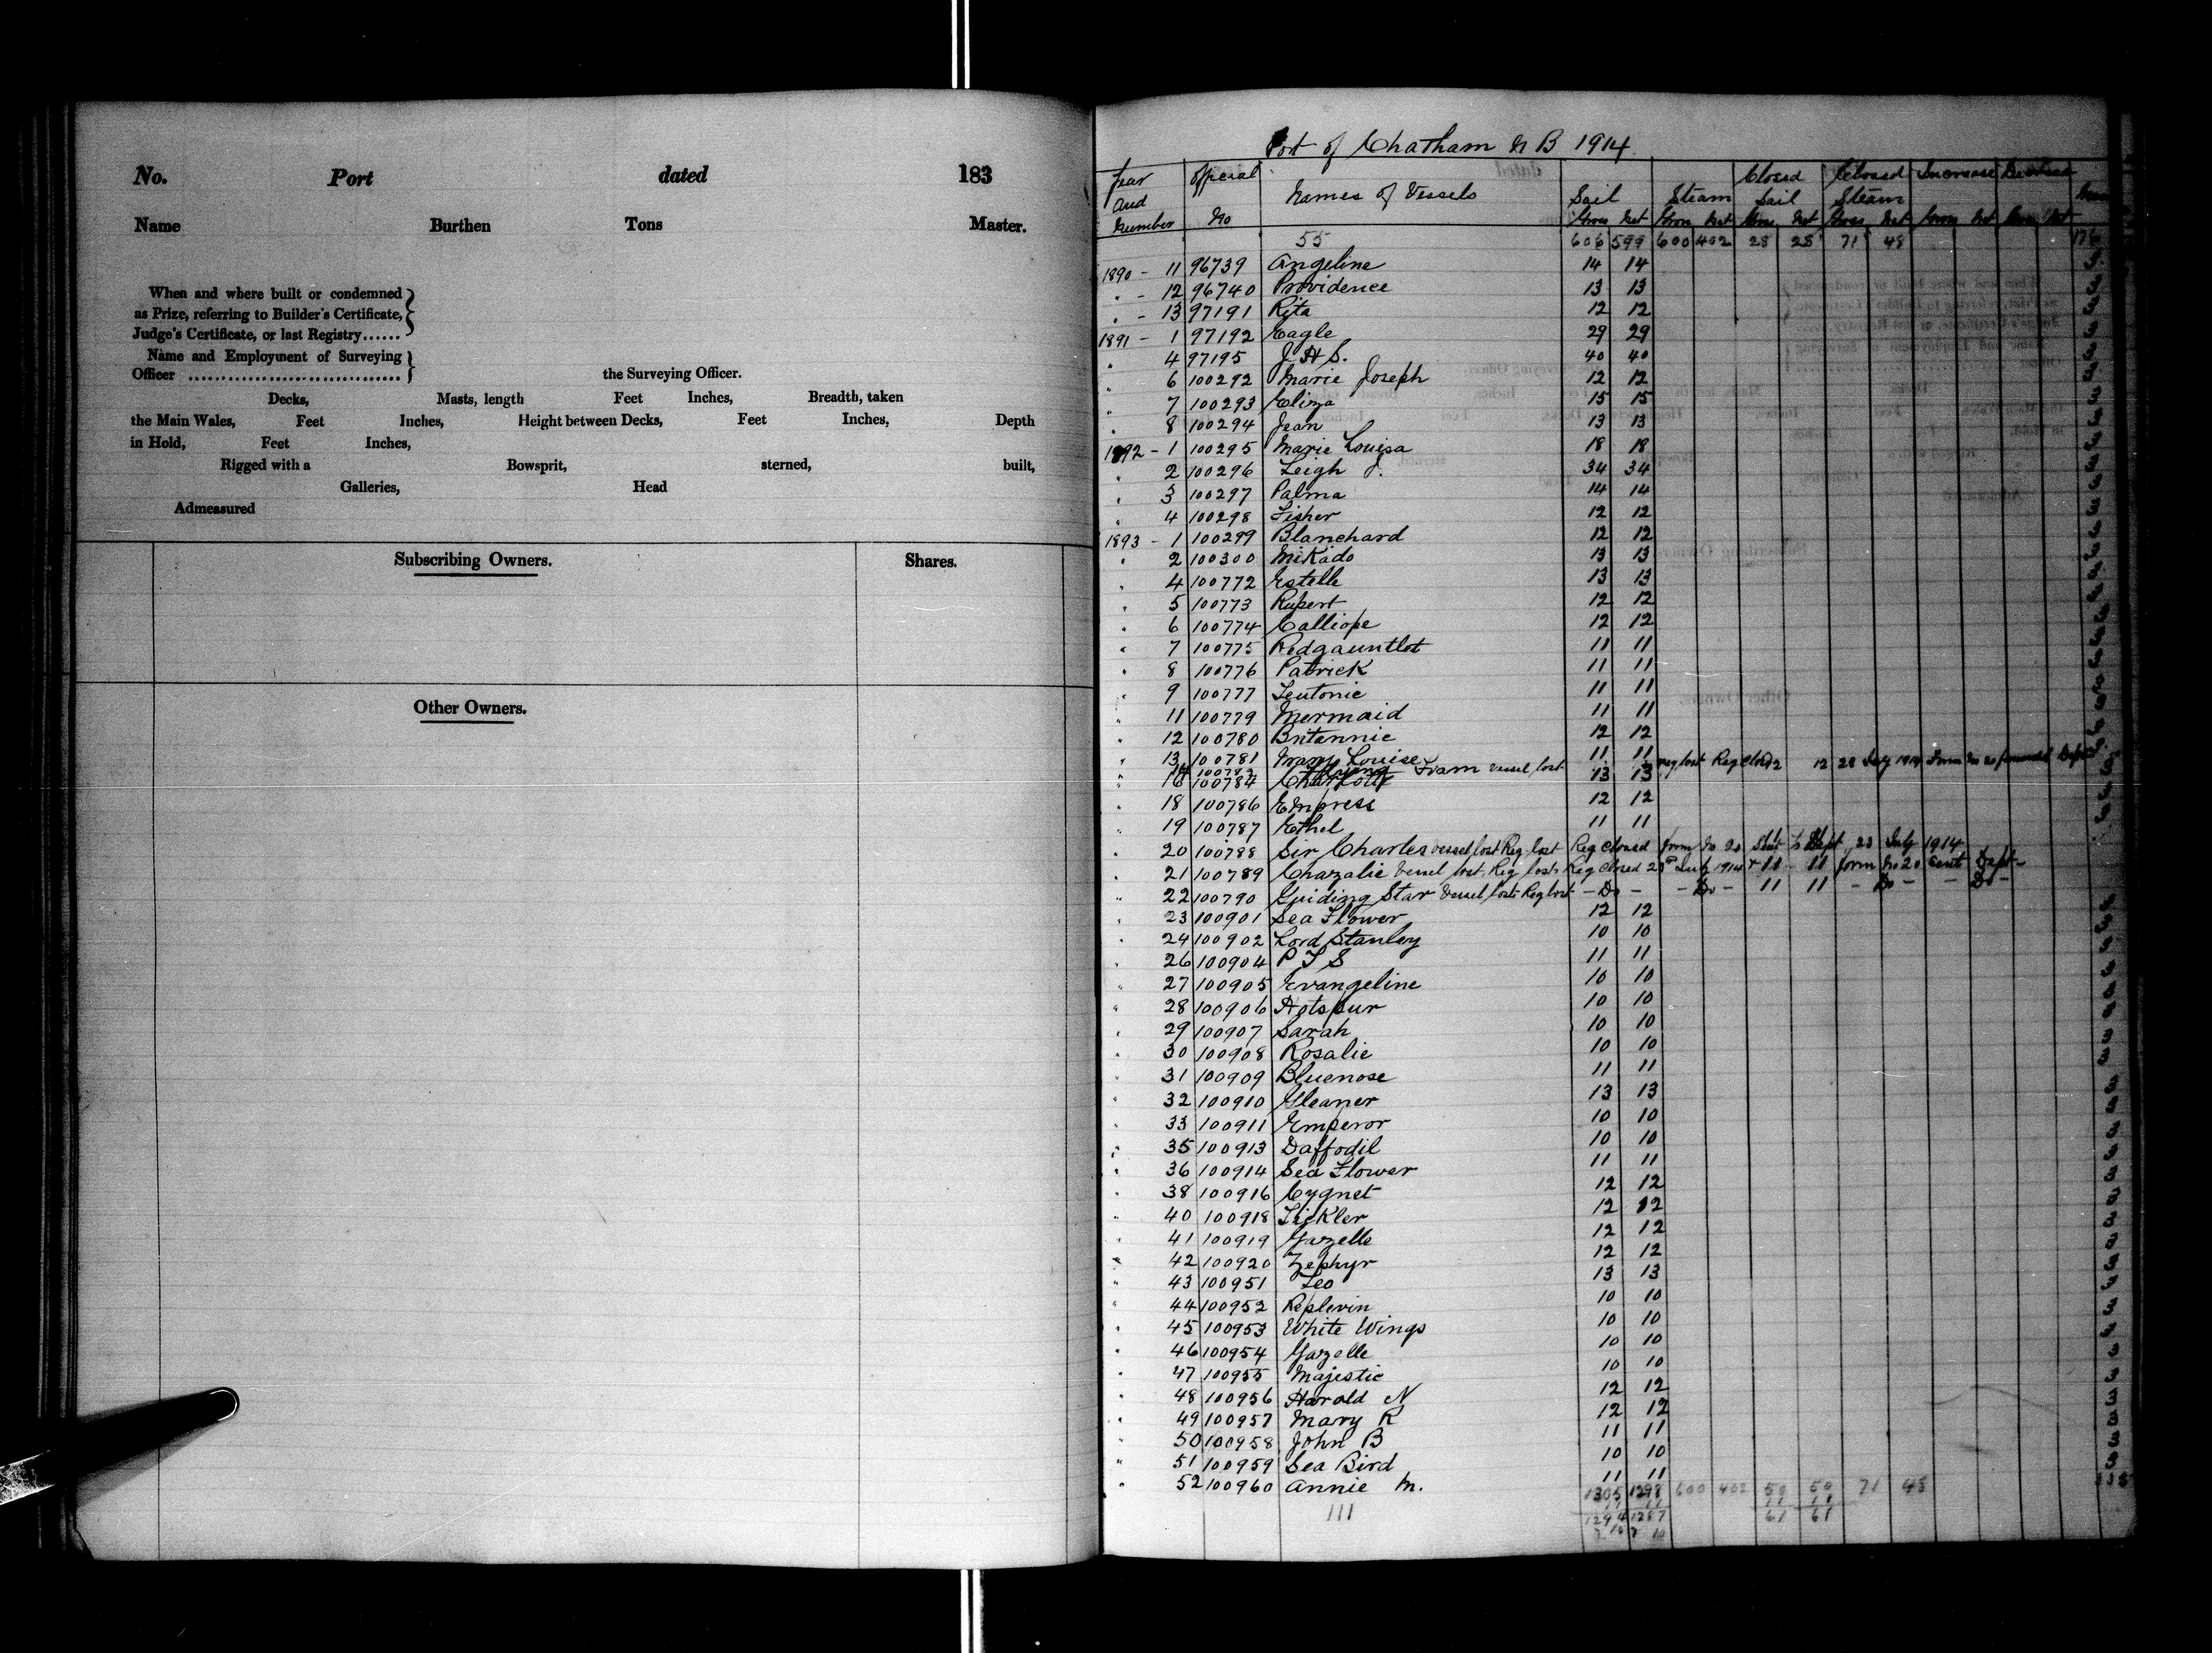 No. Port dated 183
Name Burthen Tons Master.
When and where built or condemned
as Prize, referring to Builder's Certificate,
Judge's Certificate, or last Registry......
Name and Employment of Surveying
Officer ................................ the Surveying Officer.
Decks, Masts, length Feet Inches, Breadth, taken
the Main Wales, Feet Inches, Height between Decks, Feet Inches, Depth
in Hold, Feet Inches,
Rigged with a Bowsprit, sterned, built,
Galleries, Head
Admeasured
Subscribing Owners. Shares.
Other Owners.
Port of Chatham N B 1914
Year and Number Official No Names of Vessels Sail Gross Net Steam Gross Net Closed Sail Gross Net Closed Steam Gross Net Increase Gross Net Decrease Gross Net
55 606 599 600 402 28 28 71 48 176
1890 - 11 96739 Angeline 14 14
" - 12 96740 Providence 13 13
" - 13 97191 Rita 12 12
1891 - 1 97192 Eagle 29 29
" 4 97195 J H S. 40 40
" 6 100292 Marie Joseph 12 12
" 7 100293 Eliza 15 15
" 8 100294 Jean 13 13
1892 - 1 100295 Marie Louisa 18 18
" 2 100296 Leigh J. 34 34
" 3 100297 Palma 14 14
" 4 100298 Fisher 12 12
1893 - 1 100299 Blanchard 12 12
" 2 100300 Mikado 13 13
" 4 100772 Estelle 13 13
" 5 100773 Rupert 12 12
" 6 100774 Calliope 12 12
" 7 100775 Redgauntlet 11 11
" 8 100776 Patrick 11 11
" 9 100777 Teutonic 11 11
" 11 100779 Mermaid 11 11
" 12 100780 Britannic 12 12
" 13 100781 Mary Louise 11 11
14 100782 Foam vessel lost Reg lost Reg Closed 12 12 28 July 1914 Form No 20 Dept
" 16 100784 Charlotte 13 13
" 18 100786 Empress 12 12
" 19 100787 Ethel 11 11
" 20 100788 Sir Charles vessel lost Reg lost Reg Closed form No 20 Sent to Dept 23 July 1914
" 21 100789 Chazalie Vessel lost, Reg lost, Reg Closed 23rd July 1914 11 11 form No 20 Sent Dept -
" 22 100790 Guiding Star Vessel lost Reg lost - Do - - Do - 11 11 - Do - - Do -
" 23 100901 Sea Flower 12 12
" 24 100902 Lord Stanley 10 10
" 26 100904 P T S 11 11
" 27 100905 Evangeline 10 10
" 28 100906 Hotspur 10 10
" 29 100907 Sarah 10 10
" 30 100908 Rosalie 10 10
" 31 100909 Bluenose 11 11
" 32 100910 Gleaner 13 13
" 33 100911 Emperor 10 10
" 35 100913 Daffodil 10 10
" 36 100914 Sea Flower 11 11
" 38 100916 Cygnet 12 12
" 40 100918 Tickler 12 12
" 41 100919 Gazelle 12 12
" 42 100920 Zephyr 12 12
" 43 100951 Leo 13 13
" 44 100952 Replevin 10 10
" 45 100953 White Wings 10 10
" 46 100954 Gazelle 10 10
" 47 100955 Majestic 10 10
" 48 100956 Harold N 12 12
" 49 100957 Mary R 12 12
" 50 100958 John B 11 11
" 51 100959 Sea Bird 10 10
" 52 100960 Annie M. 11 11
1305 1298 600 402 50 50 71 48
111 11 11 11 11
1294 1287 61 61